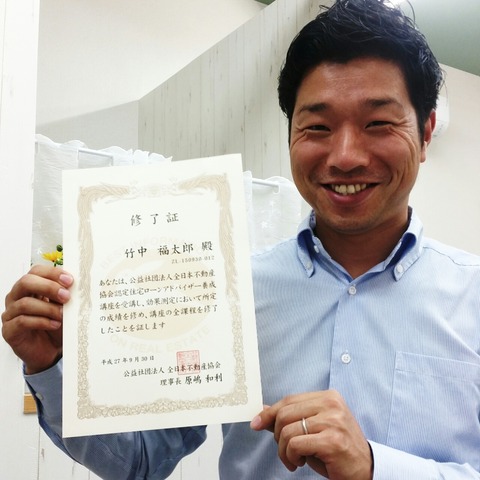 修了証
竹中 福太郎 殿
21-150930-012
あなたは、公益社団法人全日本不動産
協会認定住宅ローンアドバイザー養成
講座を受講し、効果測定において所定
の成績を修め、講座の全課程を修了
したことを証します
平成27年9月30日
公益社団法人 全日本不動産協会
理事長 原嶋 和利